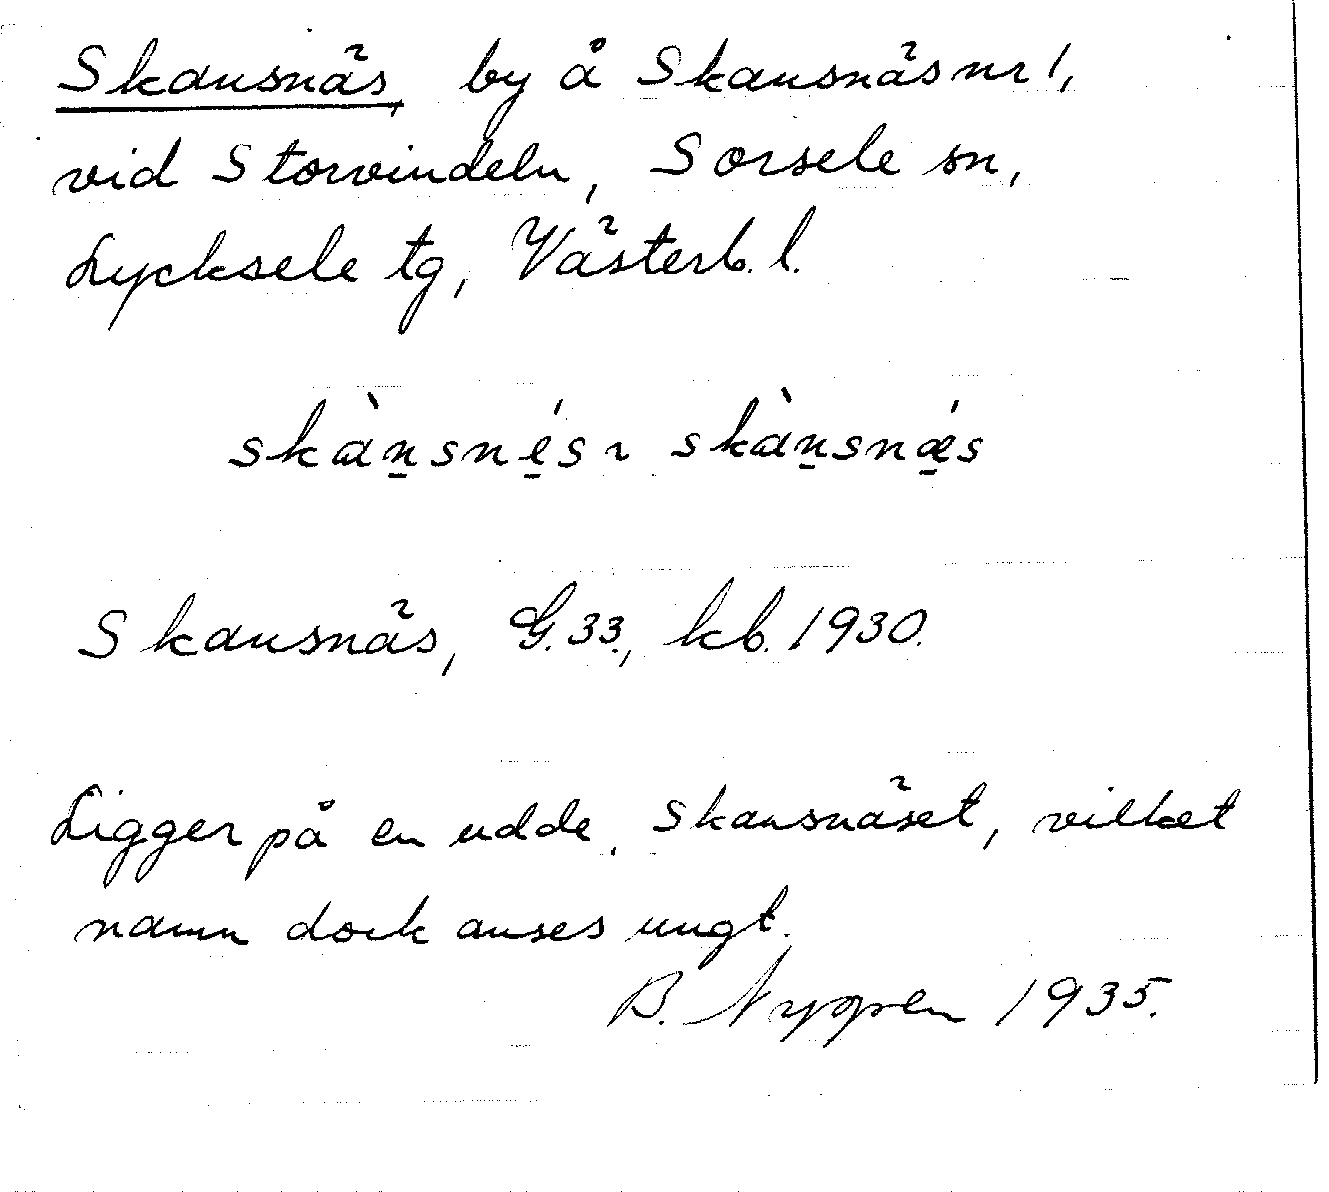 Skansnäs, by å Skansnäs nr 1,
vid Storvindeln, Sorsele sn,
Lycksele tg, Västerb. l.
skàn̠sné̠s ~ skàn̠snǽ̠s
Skansnäs, G. 33, kb. 1930.
Ligger på en udde, Skansnäset, vilket
namn dock anses ungt.
B. Nygren 1935.